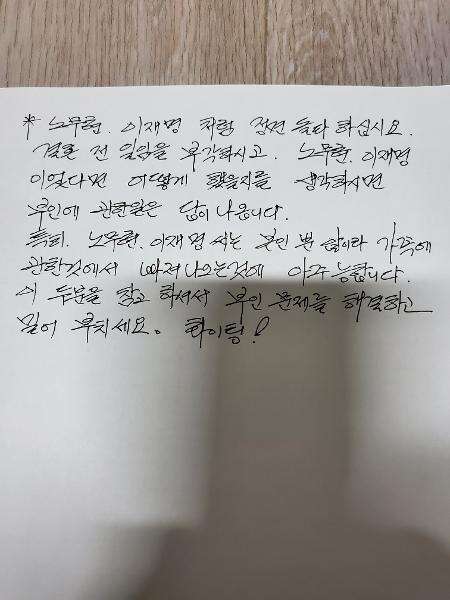 * 노무현. 이재명 처럼 정면 돌파 하십시요.
결혼 전 일임을 부각하시고. 노무현. 이재명
이었다면 어떻게 했을지를 생각하시면
부인에 관한일은 답이 나옵니다.
특히. 노무현. 이재명 씨는 본인 뿐 아니라 가족에
관한것에서 빠져나오는것에 아주 능합니다.
이 두분을 참고 하셔서 부인 문제를 해결하고
밀어 부치세요. 화이팅!